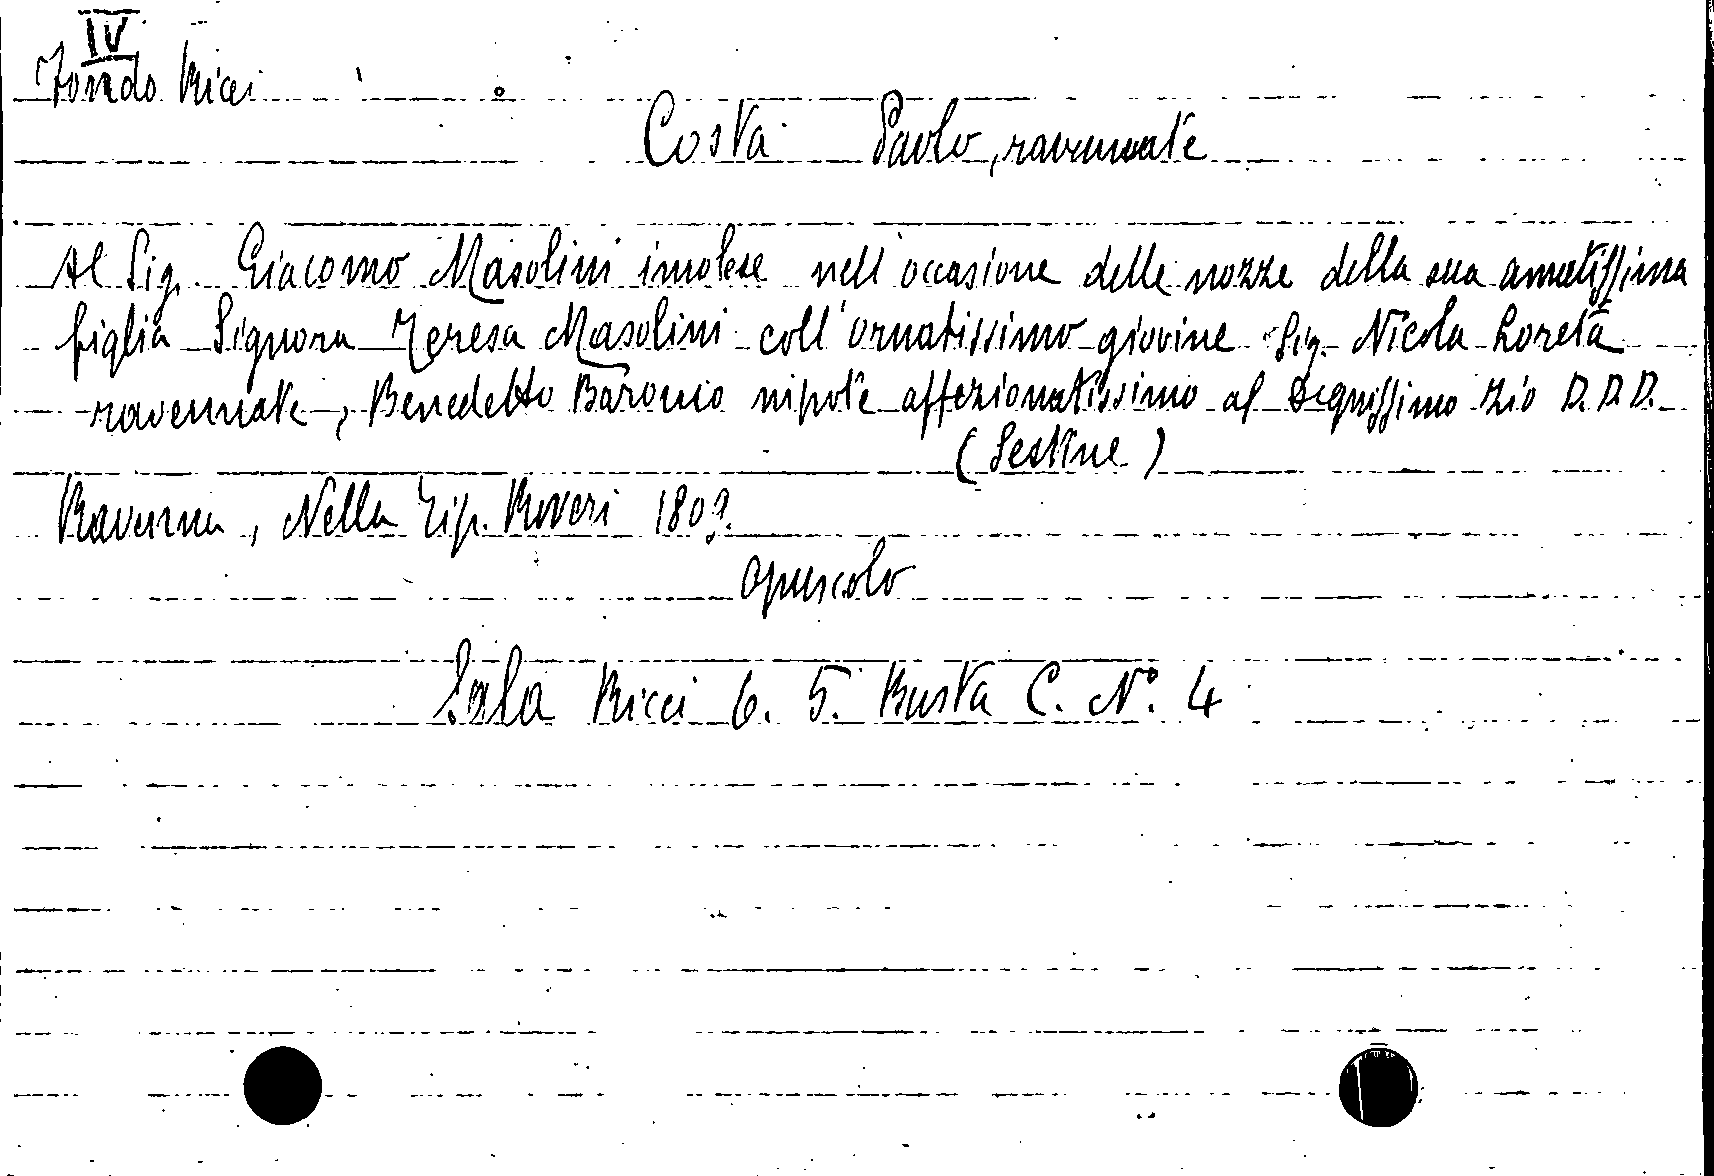 IV
Fondo Ricci
Costa Paolo, ravennate
Al Sig. Giacomo Masolini imolese nell'occasione delle nozze della sua amatissima
figlia Signora Teresa Masolini coll'ornatissimo giovine Sig. Nicola Loreta
ravennate, Benedetto Baronio nipote affezionatissimo al degnissimo zio D.D.D.
(Sestine)
Ravenna, Nella Tip. Roveri 1809.
Opuscolo
Sala Ricci 6. 5. Busta C. N° 4